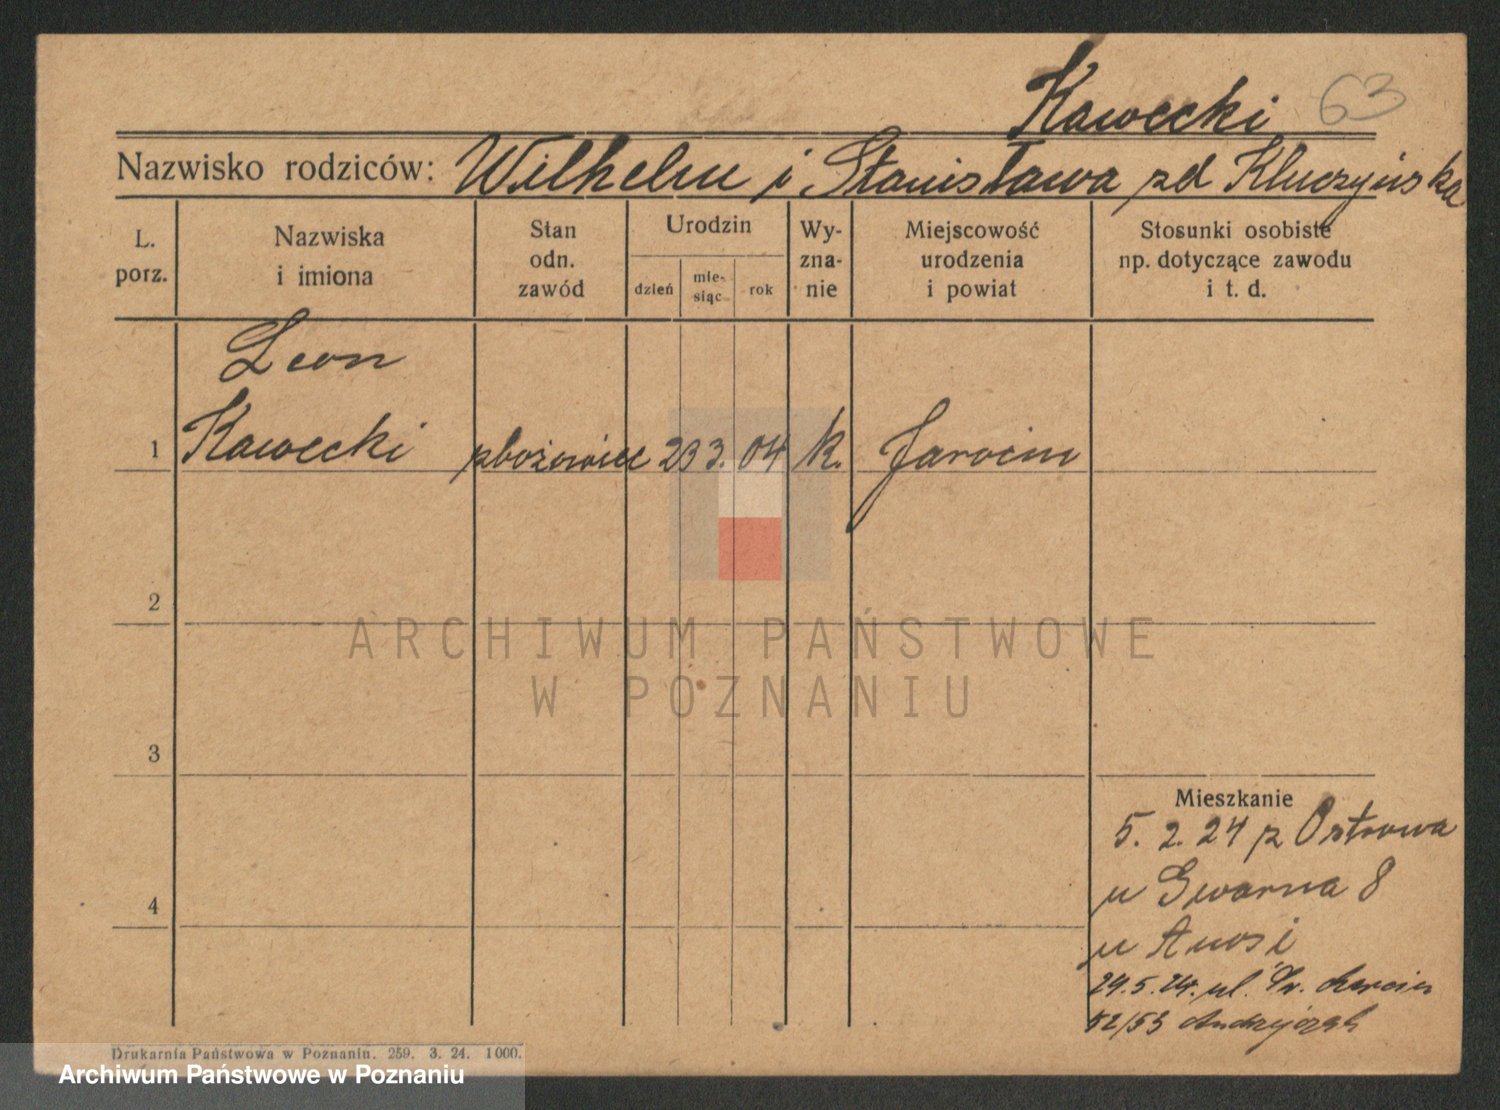 Kawecki 63
Nazwisko rodziców: Wilhelm i Stanisława zd Kluczyńska
L. porz.
Nazwiska i imiona
Stan odn. zawód
Urodzin
dzień
mie-siąc
rok
Wy-zna-nie
Miejscowość urodzenia i powiat
Stosunki osobiste np. dotyczące zawodu i t. d.
Leon
1 Kawecki zbożowiec 23 3. 04 k. Jarocin
2
ARCHIWUM PAŃSTWOWE
W POZNANIU
3
Mieszkanie
5. 2. 24 z Ostrowa
u Gwarna 8
4
u
29.5.24. ul. Św. Marcin
52/53 Andrzejczak
Drukarnia Państwowa w Poznaniu. 259. 3. 24. 1000.
Archiwum Państwowe w Poznaniu